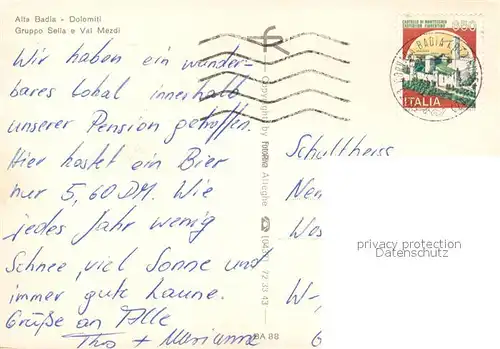 Alta Badia - Dolomiti
Gruppo Sella e Val Mezdi
Wir haben ein wunder-
bares Lokal innerhalb
unserer Pension getroffen.
Hier kostet ein Bier
nur 5,60 DM. Wie
jedes Jahr wenig
Schnee, viel Sonne und
immer gute Laune.
Grüße an Alle
Theo + Marianne
Copyright by Fotorapida Alleghe
72 33 43
BA 88
CASTELLO DI MONTECCHIO
CASTIGLION FIORENTINO
650
ITALIA
BADIA
Schultheiss
Neu
Wes
W-
6
privacy protection
Datenschutz